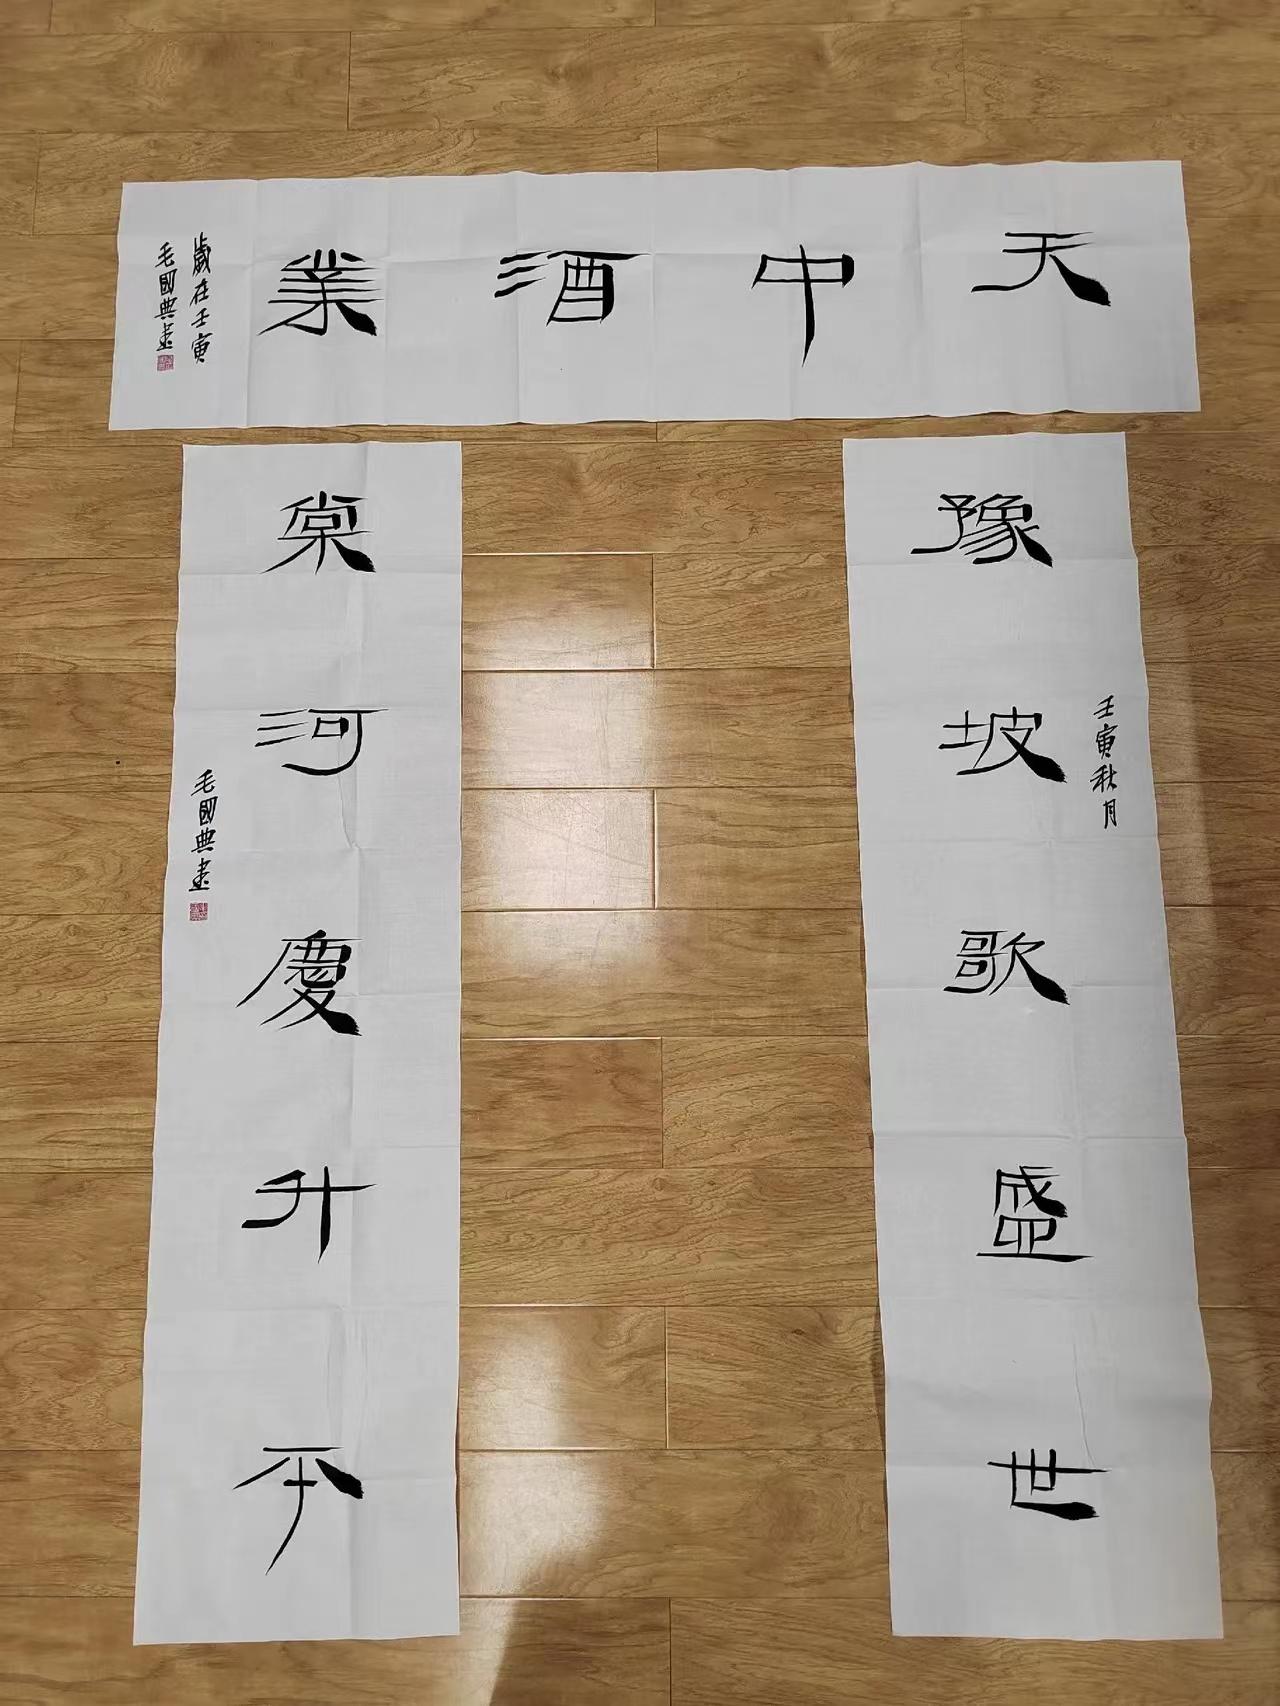 天中酒業
歲在壬寅
毛國典書
豫坡歌盛世
壬寅秋月
棠河慶升平
毛國典書